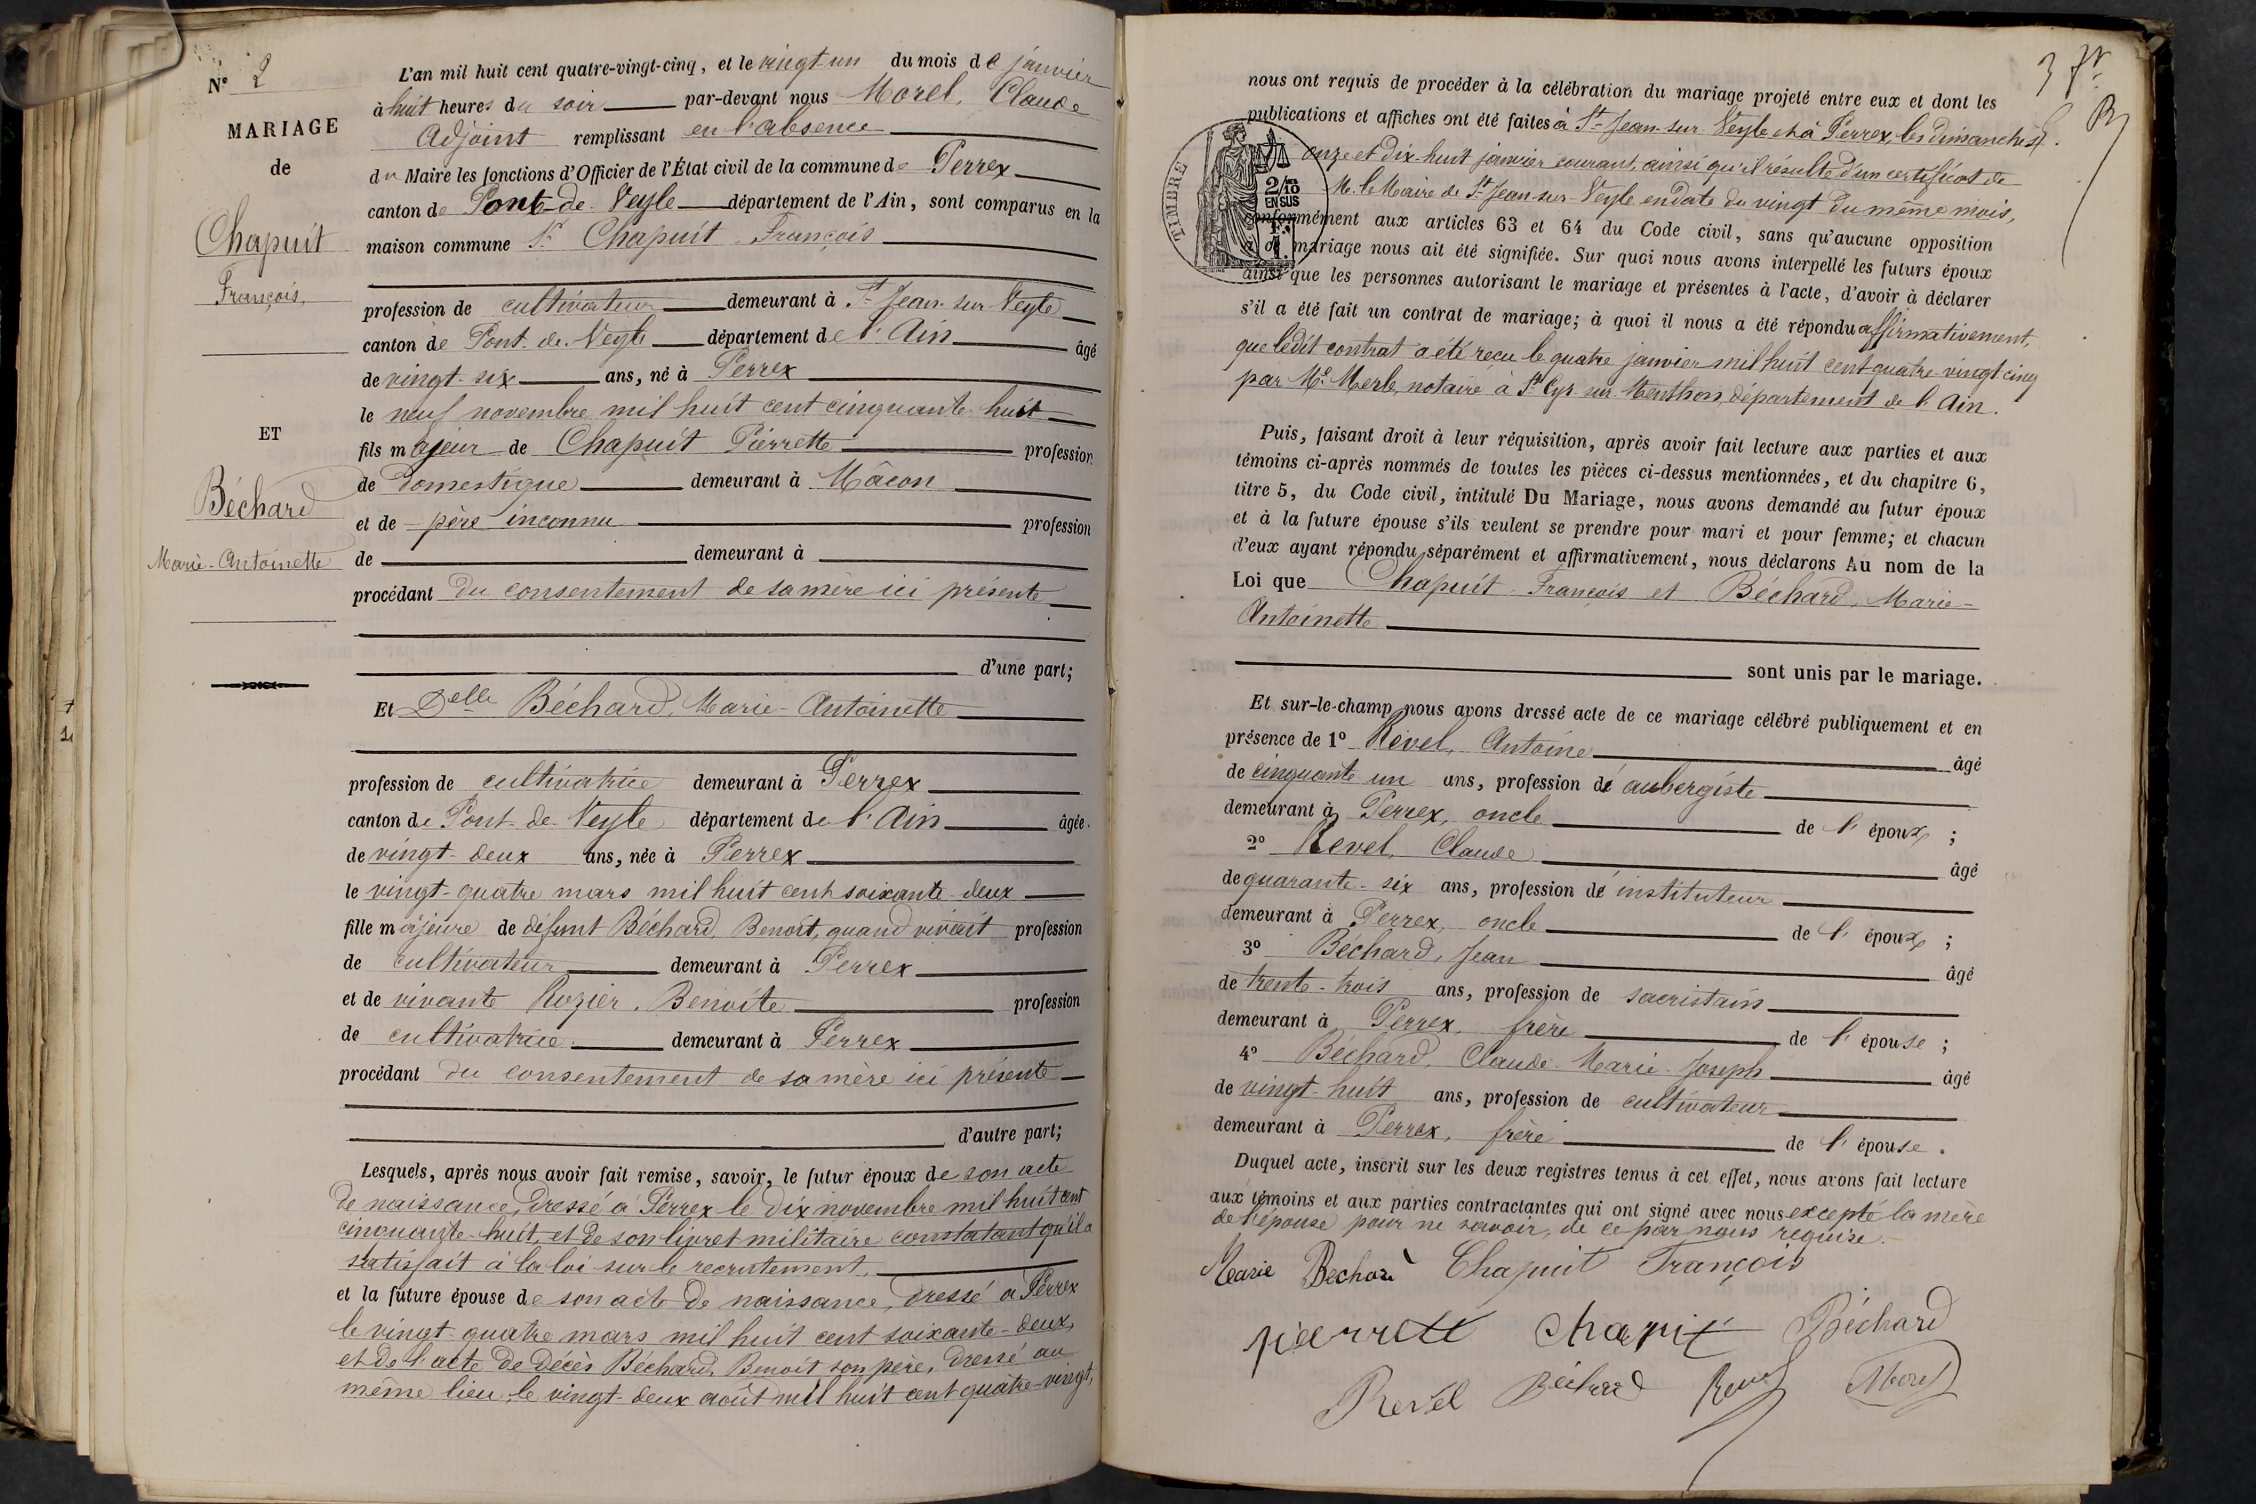 N° 2
MARIAGE
de
Chapuit
François,
ET
Béchard
Marie-Antoinette
L'an mil huit cent quatre-vingt-cinq, et le vingt-un du mois de janvier
à huit heures du soir par-devant nous Morel, Claude
Adjoint remplissant en l'absence
du Maire les fonctions d'Officier de l'État civil de la commune de Perrex
canton de Pont-de-Veyle département de l'Ain, sont comparus en la
maison commune Sr Chapuit François
profession de cultivateur demeurant à St-Jean-sur-Veyle
canton de Pont-de-Veyle département de l'Ain âgé
de vingt-six ans, né à Perrex
le neuf novembre mil huit cent cinquante-huit
fils majeur de Chapuit Pierrette profession
de domestique demeurant à Mâcon
et de père inconnu profession
de demeurant à
procédant du consentement de sa mère ici présente
d'une part;
Et Delle Béchard, Marie-Antoinette
profession de cultivatrice demeurant à Perrex
canton de Pont-de-Veyle département de l'Ain âgée
de vingt-deux ans, née à Perrex
le vingt-quatre mars mil huit cent soixante-deux
fille majeure de défunt Béchard, Benoît, quand vivait profession
de cultivateur demeurant à Perrex
et de vivante Rozier, Benoîte profession
de cultivatrice demeurant à Perrex
procédant du consentement de sa mère ici présente
d'autre part;
Lesquels, après nous avoir fait remise, savoir, le futur époux de son acte
de naissance, dressé à Perrex le dix novembre mil huit cent
cinquante-huit, et de son livret militaire constatant qu'il a
satisfait à la loi sur le recrutement,
et la future épouse de son acte de naissance, dressé à Perrex
le vingt-quatre mars mil huit cent soixante-deux,
et de l'acte de décès Béchard, Benoît son père, dressé au
même lieu, le vingt-deux août mil huit cent quatre-vingt,
3
nous ont requis de procéder à la célébration du mariage projeté entre eux et dont les
publications et affiches ont été faites à St-Jean-sur-Veyle et à Perrex, les dimanches
onze et dix-huit janvier courant, ainsi qu'il résulte d'un certificat de
M. le Maire de St-Jean-sur-Veyle en date du vingt du même mois,
conformément aux articles 63 et 64 du Code civil, sans qu'aucune opposition
à ce mariage nous ait été signifiée. Sur quoi nous avons interpellé les futurs époux
ainsi que les personnes autorisant le mariage et présentes à l'acte, d'avoir à déclarer
s'il a été fait un contrat de mariage; à quoi il nous a été répondu affirmativement,
que ledit contrat a été reçu le quatre janvier mil huit cent quatre-vingt-cinq
par Me Merle, notaire à St Cyr-sur-Menthon, département de l'Ain.
TIMBRE
2/10
EN SUS
Puis, faisant droit à leur réquisition, après avoir fait lecture aux parties et aux
témoins ci-après nommés de toutes les pièces ci-dessus mentionnées, et du chapitre 6,
titre 5, du Code civil, intitulé Du Mariage, nous avons demandé au futur époux
et à la future épouse s'ils veulent se prendre pour mari et pour femme; et chacun
d'eux ayant répondu séparément et affirmativement, nous déclarons Au nom de la
Loi que Chapuit François et Béchard, Marie-
Antoinette
sont unis par le mariage.
Et sur-le-champ nous avons dressé acte de ce mariage célébré publiquement et en
présence de 1° Revel, Antoine âgé
de cinquante-un ans, profession d'aubergiste
demeurant à Perrex, oncle de l'époux ;
2° Revel, Claude âgé
de quarante-six ans, profession d'instituteur
demeurant à Perrex, oncle de l'époux ;
3° Béchard, Jean âgé
de trente-trois ans, profession de sacristain
demeurant à Perrex, frère de l'épouse ;
4° Béchard, Claude-Marie-Joseph âgé
de vingt-huit ans, profession de cultivateur
demeurant à Perrex, frère de l'épouse.
Duquel acte, inscrit sur les deux registres tenus à cet effet, nous avons fait lecture
aux témoins et aux parties contractantes qui ont signé avec nous excepté la mère
de l'épouse pour ne savoir, de ce par nous requise.
Marie Bechard Chapuit François
pierrette chapit Béchard
Revel Béchard Revel Morel